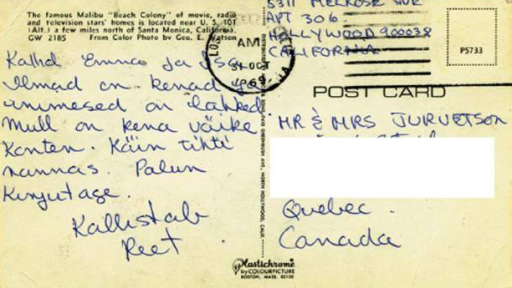 The famous Malibu "Beach Colony" of movie, radio
and television stars' homes is located near U. S. 101
(Alt.) a few miles north of Santa Monica, California.
GW 2185 From Color Photo by Geo. E. Watson
Kallid Emma ja Isa.
Ilmad on kenad ja
inimesed on lahked
Mull on kena väike
korter. Käin tihti
rannas. Palun
kirjutage.
Kallistab
Reet
AM
31 OCT
1969
5311 MELROSE AVE
APT 306
HOLLYWOOD 90038
CALIFORNIA
P5733
POST CARD
MR & MRS JURVETSON
Quebec.
Canada
Plastichrome
by COLOURPICTURE
BOSTON, MASS. 02130